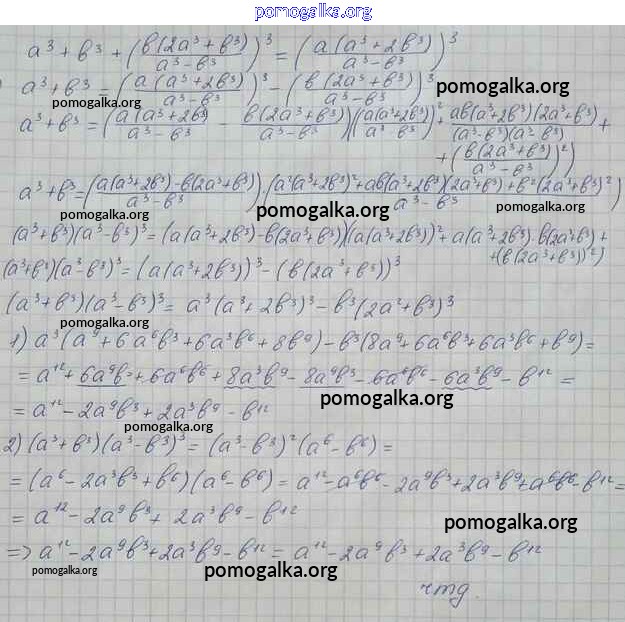 pomogalka.org
a³ + b³ + (b(2a³ + b³)/(a³ - b³))³ = (a(a³ + 2b³)/(a³ - b³))³
a³ + b³ = (a(a³ + 2b³)/(a³ - b³))³ - (b(2a³ + b³)/(a³ - b³))³ pomogalka.org
pomogalka.org
a³ + b³ = (a(a³ + 2b³)/(a³ - b³) - b(2a³ + b³)/(a³ - b³))((a(a³ + 2b³)/(a³ - b³))² + ab(a³ + 2b³)(2a³ + b³)/((a³ - b³)(a³ - b³)) +
+ (b(2a³ + b³)/(a³ - b³))²)
a³ + b³ = (a(a³ + 2b³) - b(2a³ + b³)/(a³ - b³)) · (a²(a³ + 2b³)² + ab(a³ + 2b³)(2a³ + b³) + b²(2a³ + b³)²)/(a³ - b³)
pomogalka.org pomogalka.org pomogalka.org
(a³ + b³)(a³ - b³)³ = (a(a³ + 2b³) - b(2a³ + b³))((a(a³ + 2b³))² + a(a³ + 2b³) · b(2a³ + b³) +
+ (b(2a³ + b³))²)
(a³ + b³)(a³ - b³)³ = (a(a³ + 2b³))³ - (b(2a³ + b³))³
(a³ + b³)(a³ - b³)³ = a³(a³ + 2b³)³ - b³(2a² + b³)³
pomogalka.org
1) a³(a⁹ + 6a⁶b³ + 6a³b⁶ + 8b⁹) - b³(8a⁹ + 6a⁶b³ + 6a³b⁶ + b⁹) =
= a¹² + 6a⁹b³ + 6a⁶b⁶ + 8a³b⁹ - 8a⁹b³ - 6a⁶b⁶ - 6a³b⁹ - b¹² =
pomogalka.org
= a¹² - 2a⁹b³ + 2a³b⁹ - b¹²
pomogalka.org
2) (a³ + b³)(a³ - b³)³ = (a³ - b³)²(a⁶ - b⁶) =
= (a⁶ - 2a³b³ + b⁶)(a⁶ - b⁶) = a¹² - a⁶b⁶ - 2a⁹b³ + 2a³b⁹ + a⁶b⁶ - b¹² =
= a¹² - 2a⁹b³ + 2a³b⁹ - b¹² pomogalka.org
=> a¹² - 2a⁹b³ + 2a³b⁹ - b¹² = a¹² - 2a⁹b³ + 2a³b⁹ - b¹²
pomogalka.org pomogalka.org
чтд.